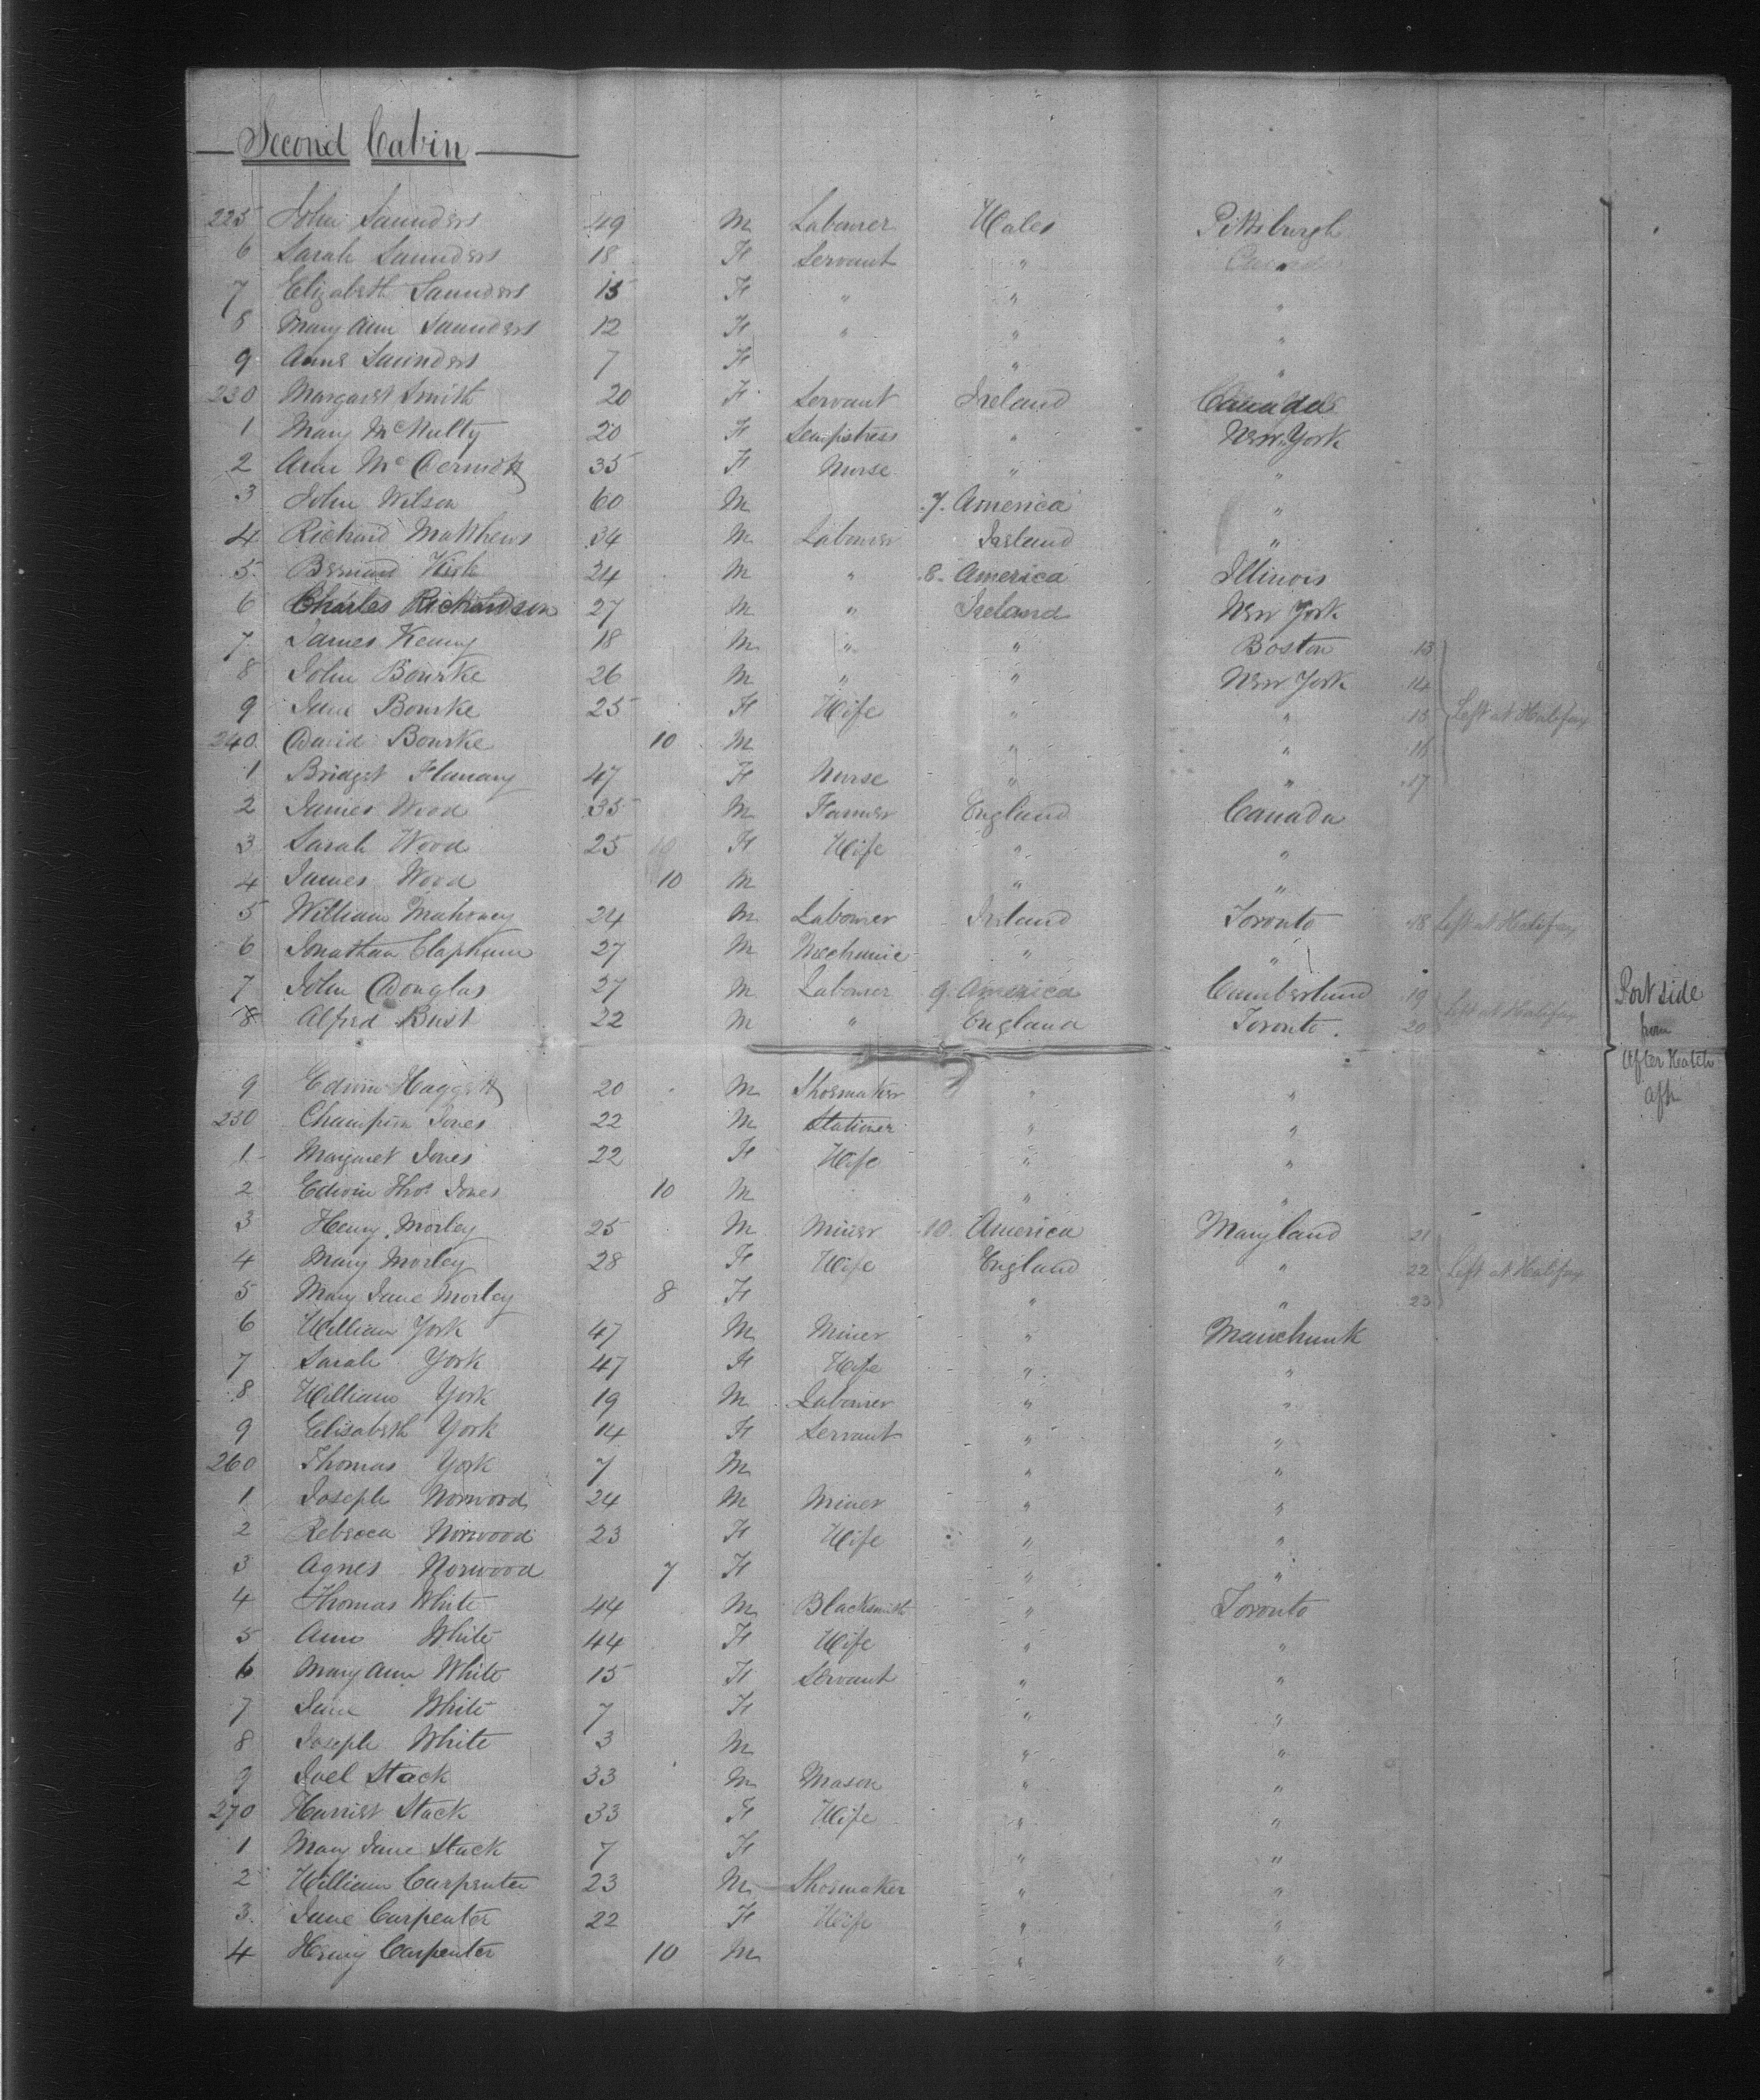 Second Cabin
225 John Saunders 49 M Labourer Wales Pittsburgh
6 Sarah Saunders 18 F Servant " "
7 Elizabeth Saunders 15 F " " "
8 Mary Ann Saunders 12 F " " "
9 Anne Saunders 7 F " "
230 Margaret Smith 20 F Servant Ireland Canada
1 Mary McNulty 20 F Sempstress " New York
2 Ann 35 F Nurse " "
3 John Wilson 60 M .7. America "
4 Richard Matthews 34 M Labourer Ireland "
5 Bernard Kish 24 M " .8. America Illinois
6 Charles Richardson 27 M " Ireland New York
7 James Kenny 18 M " " Boston 13
8 John Bourke 26 M " " New York 14
9 Jane Bourke 25 F Wife " " 15 Left at Halifax
240 David Bourke 10 M " " 16
1 Bridget Flanary 47 F Nurse " " 17
2 James Wood 35 M Farmer England Canada
3 Sarah Wood 25 F Wife " "
4 James Wood 10 M " "
5 William Mahoney 24 M Labourer Ireland Toronto 18 Left at Halifax
6 Jonathan Clapham 27 M Mechanic " "
7 John Douglas 27 M Labourer 9. America Cumberland 19
8 Alfred Bust 22 M " England Toronto. 20 Left at Halifax
Port side
from
After Hatch
aft
9 Edwin Haggett 20 M Shoemaker " "
250 Champion Jones 22 M Stationer " "
1 Margaret Jones 22 F Wife " "
2 Edwin Thos Jones 10 M " "
3 Henry Morley 25 M Miner 10. America Maryland 21
4 Mary Morley 28 F Wife England " 22 Left at Halifax
5 Mary Jane Morley 8 F " " 23
6 William York 47 M Miner " Mauchunk
7 Sarah York 47 F Wife " "
8 William York 19 M Labourer " "
9 Elisabeth York 14 F Servant " "
260 Thomas York 7 M " "
1 Joseph Norwood 24 M Miner " "
2 Rebecca Norwood 23 F Wife " "
3 Agnes Norwood 7 F " "
4 Thomas White 44 M Blacksmith " Toronto
5 Ann White 44 F Wife " "
6 Mary Ann White 15 F Servant " "
7 Jane White 7 F " "
8 Joseph White 3 M " "
9 Joel Stack 33 M Mason " "
270 Harriet Stack 33 F Wife " "
1 Mary Jane Stack 7 F " "
2 William Carpenter 23 M Shoemaker " "
3. Jane Carpenter 22 F Wife " "
4 Henry Carpenter 10 M " "